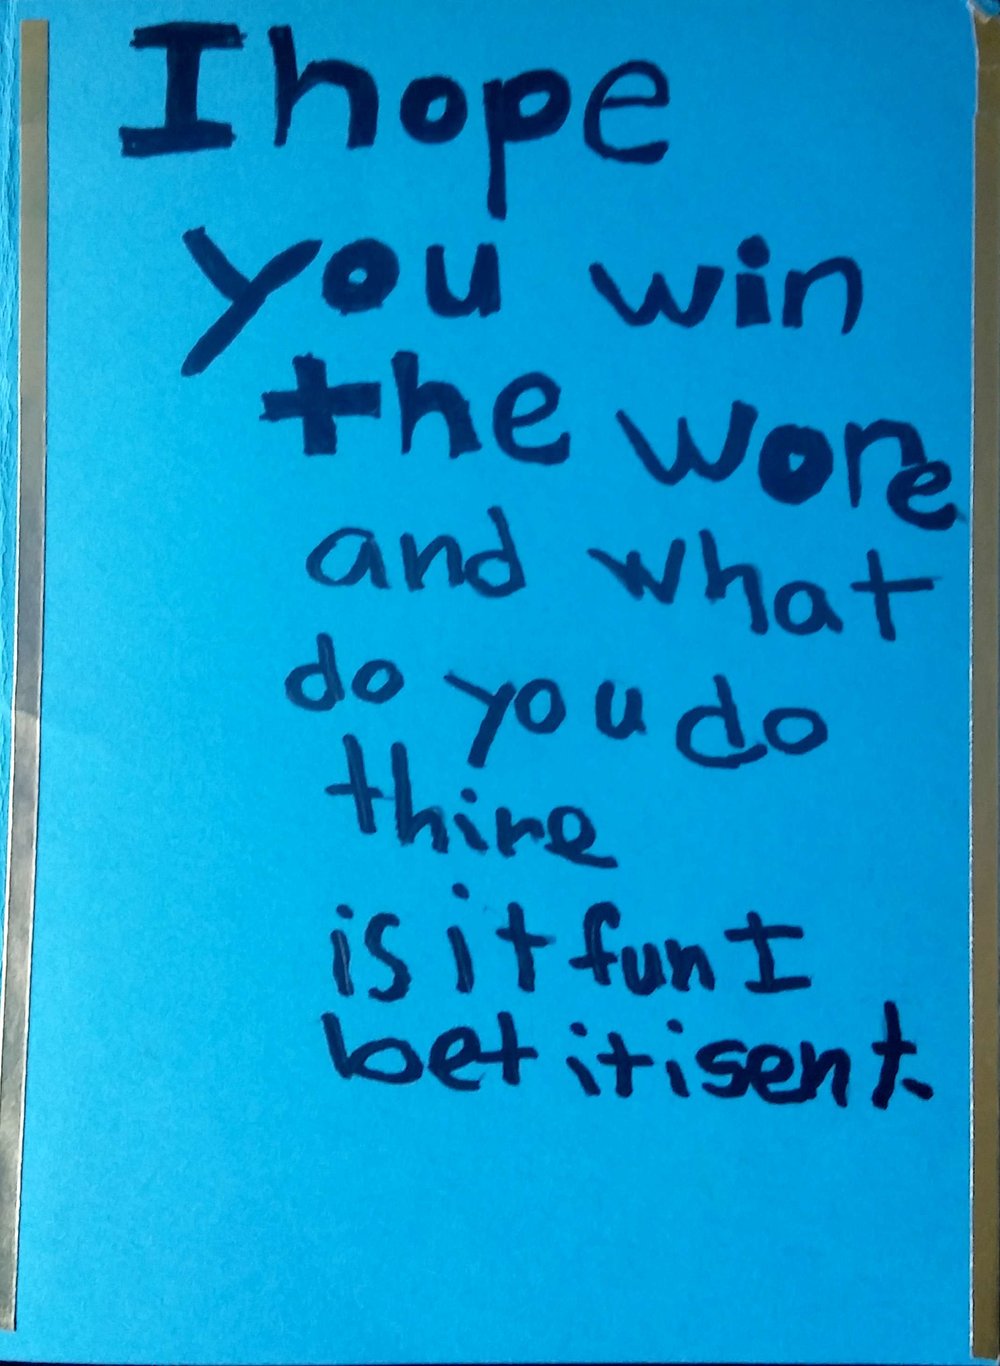 I hope
you win
the wore
and what
do you do
thire
is it fun I
bet it isent.